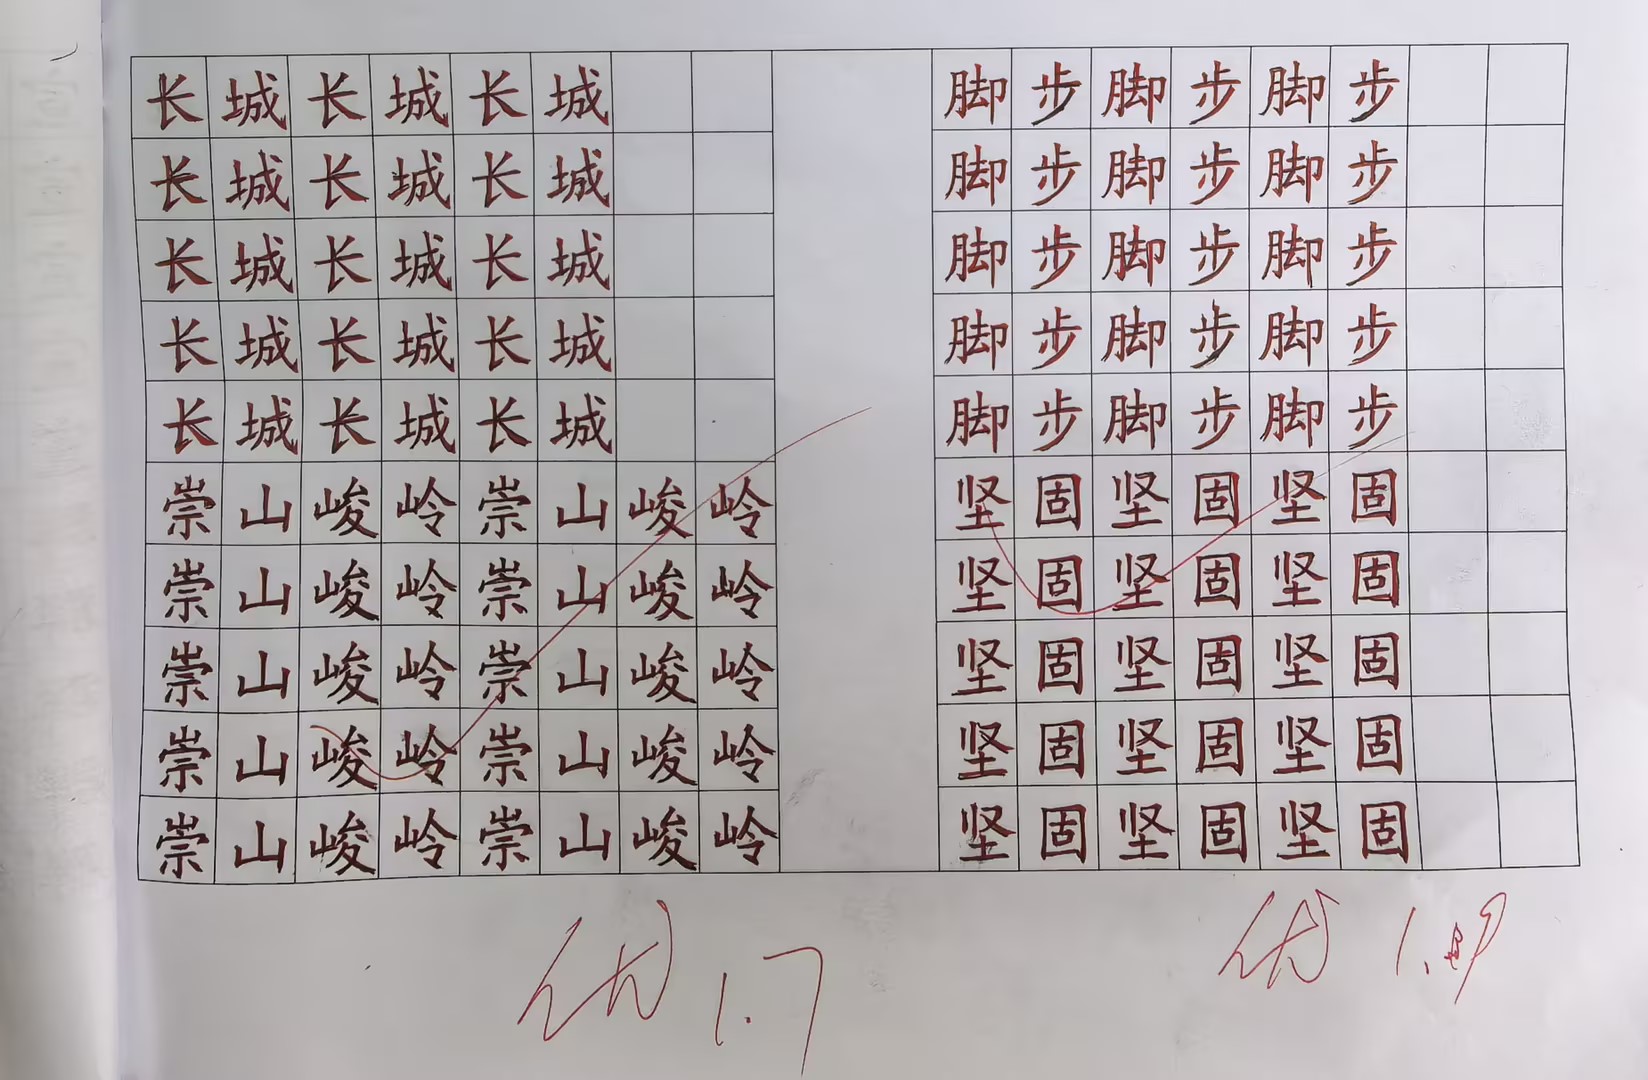 长城长城长城
长城长城长城
长城长城长城
长城长城长城
长城长城长城
崇山峻岭崇山峻岭
崇山峻岭崇山峻岭
崇山峻岭崇山峻岭
崇山峻岭崇山峻岭
崇山峻岭崇山峻岭
优 1.7
脚步脚步脚步
脚步脚步脚步
脚步脚步脚步
脚步脚步脚步
脚步脚步脚步
坚固坚固坚固
坚固坚固坚固
坚固坚固坚固
坚固坚固坚固
坚固坚固坚固
优 1.9